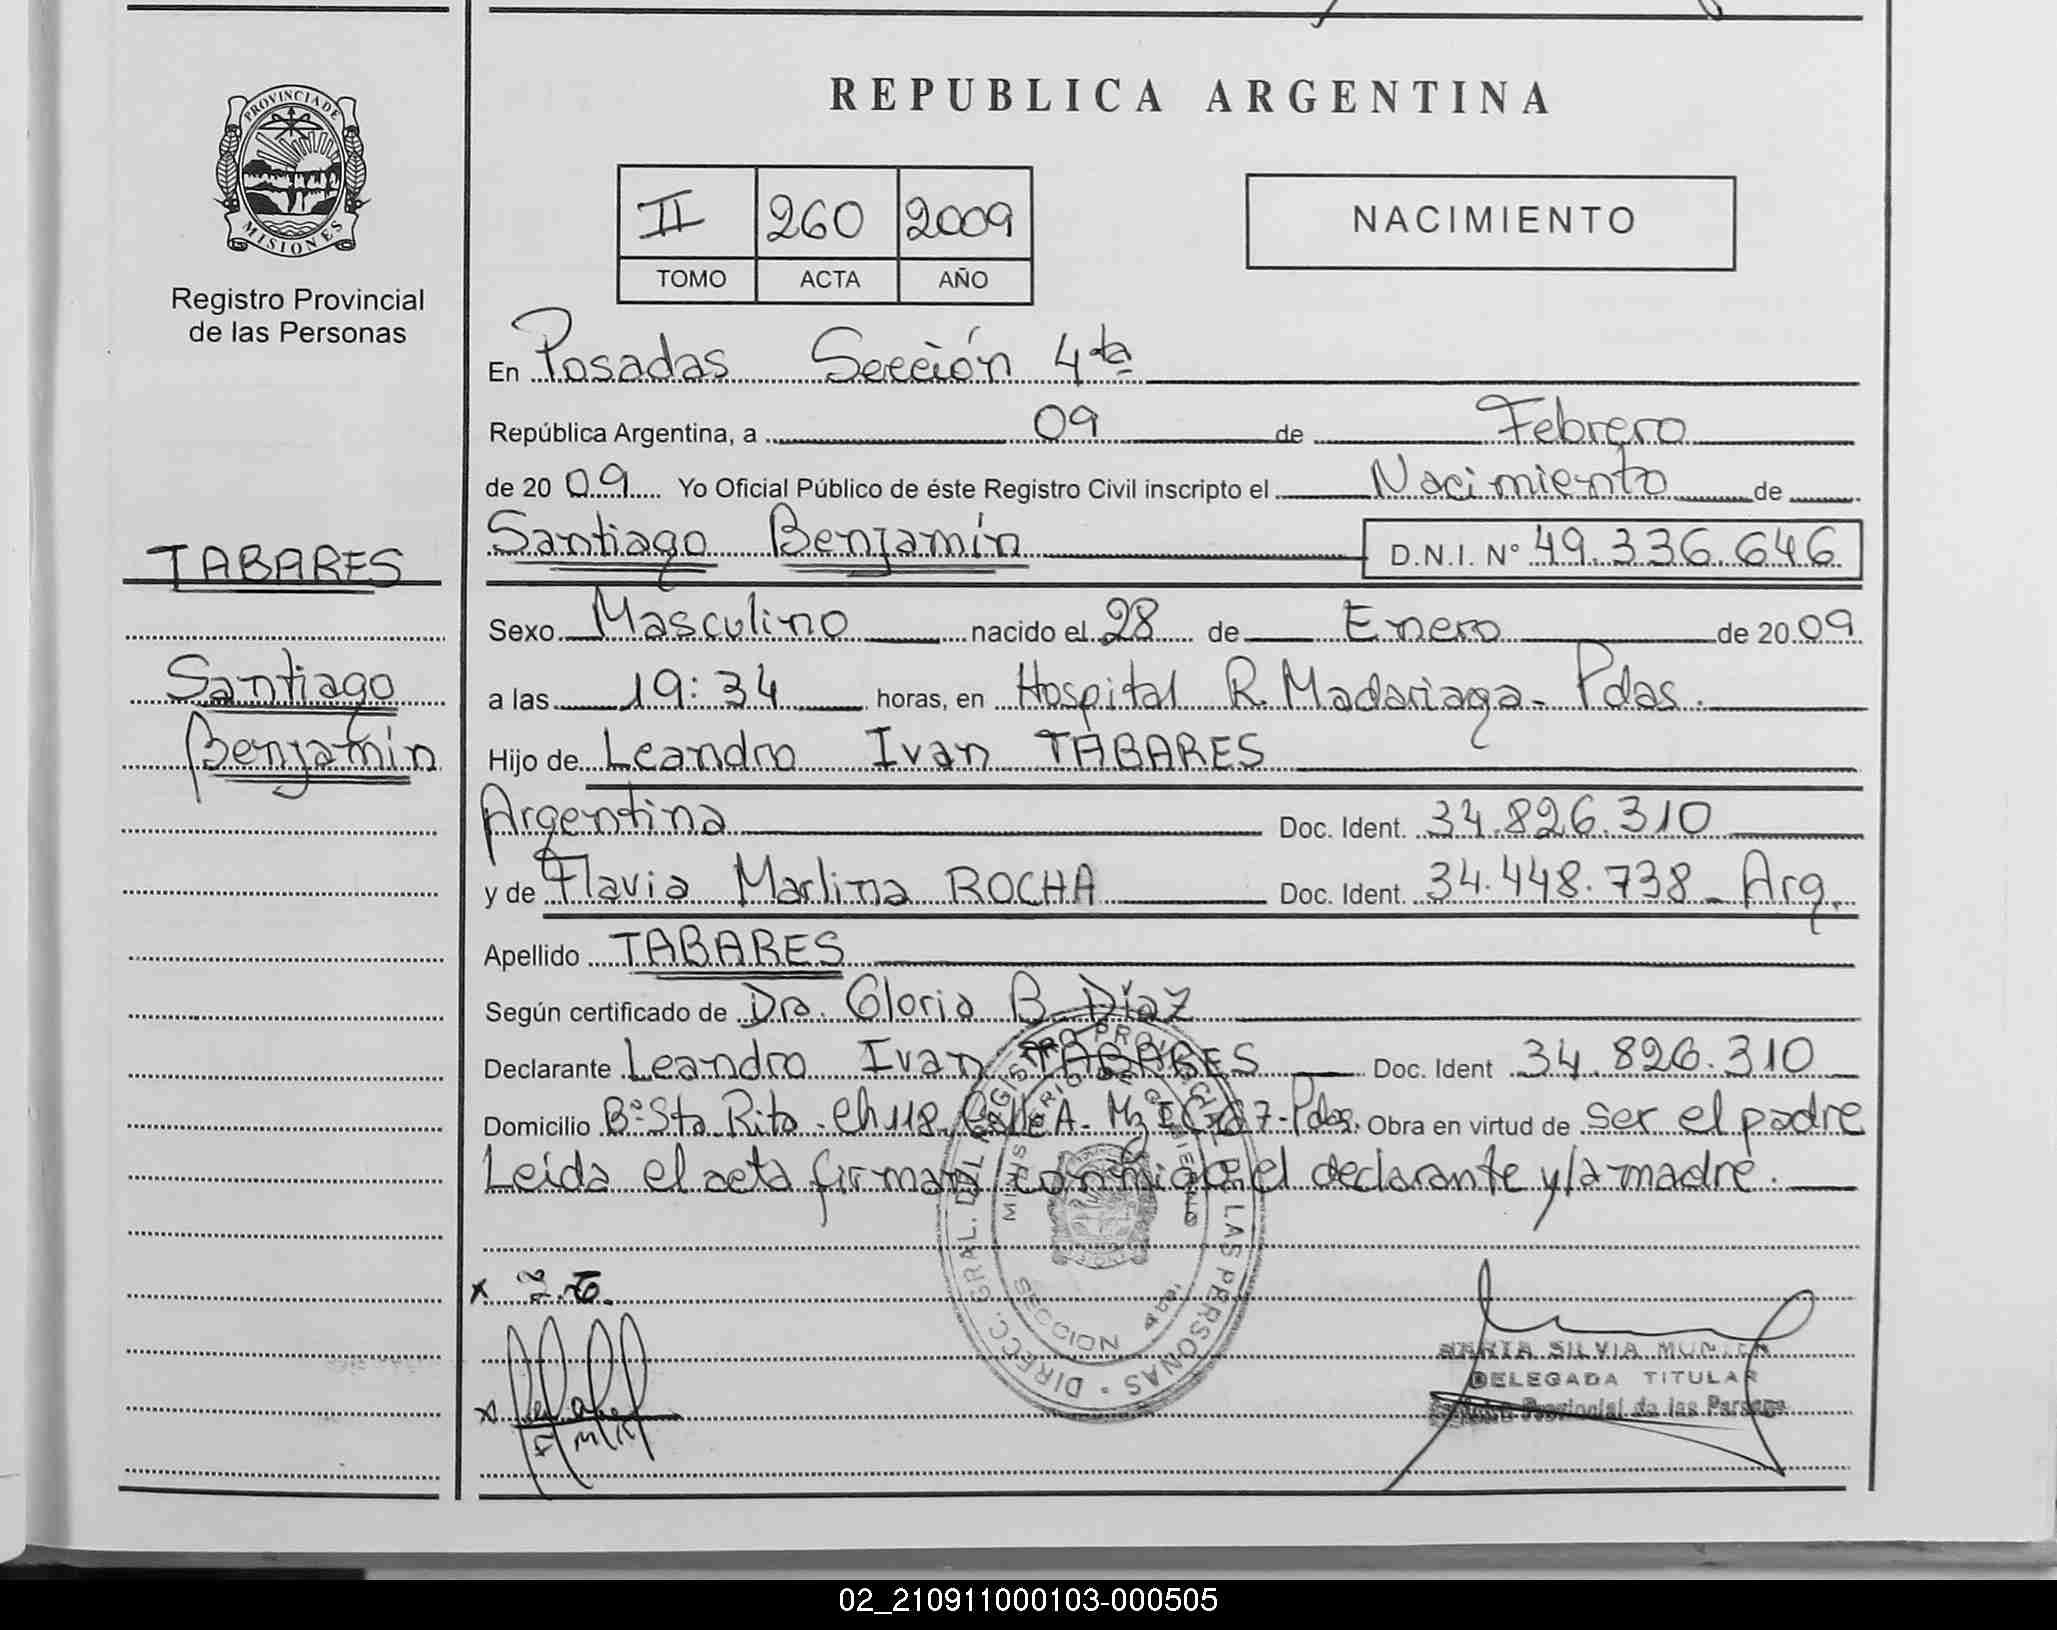 PROVINCIA DE
MISIONES
Registro Provincial
de las Personas
TABARES
Santiago
Benjamín
REPUBLICA ARGENTINA
II 260 2009
TOMO ACTA AÑO
NACIMIENTO
En Posadas Sección 4ta
República Argentina, a 09 de Febrero
de 2009 Yo Oficial Público de éste Registro Civil inscripto el Nacimiento de
Santiago Benjamín D.N.I. N° 49.336.646
Sexo Masculino nacido el 28 de Enero de 2009
a las 19:34 horas, en Hospital R. Madariaga - Pdas.
Hijo de Leandro Ivan TABARES
Argentina Doc. Ident. 34.826.310
y de Flavia Marlina ROCHA Doc. Ident. 34.448.738 - Arg.
Apellido TABARES
Según certificado de Dra. Gloria B. Díaz
Declarante Leandro Ivan TABARES Doc. Ident 34.826.310
Domicilio B° Sta Rita - Ch 118 Calle A - Mz I C 7 - Pdas. Obra en virtud de ser el padre
Leida el acta firman conmigo el declarante y la madre.
DIRECC. GRAL. DEL REGISTRO PROVINCIAL DE LAS PERSONAS
MINISTERIO DE GOBIERNO
SECCION 4
SILVIA
DELEGADA TITULAR
Registro Provincial de las Personas
02_210911000103-000505